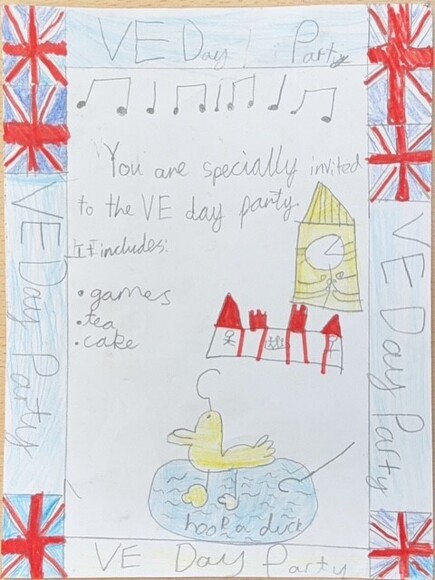 VE Day! Party
You are specially invited
to the VE day party.
It includes:
• games
• tea
• cake
VE Day Party
VE Day Party
hook a duck
VE Day Party